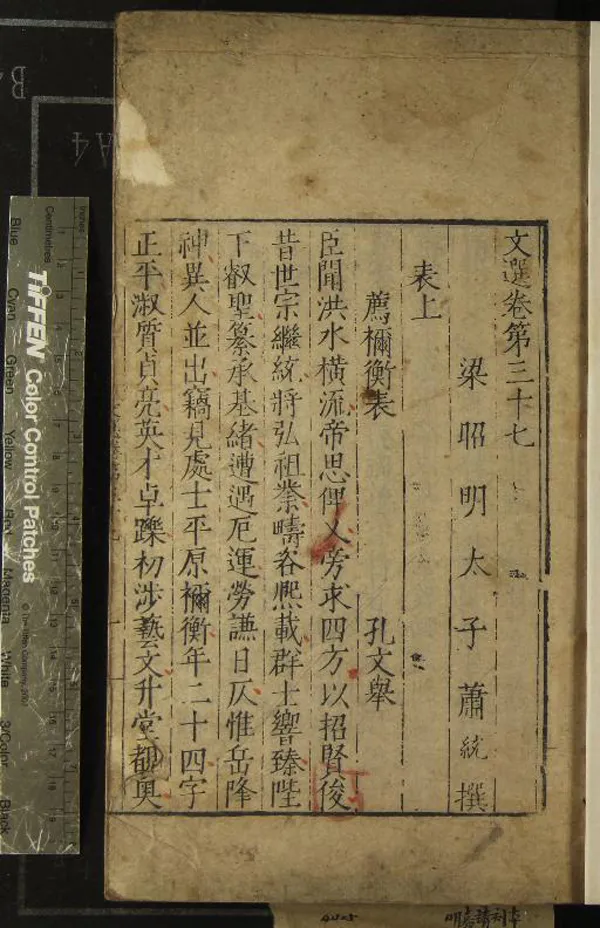 文選卷第三十七
梁昭明太子蕭統撰
表上
薦禰衡表 孔文舉
臣聞洪水橫流帝思俾乂旁求四方以招賢俊
昔世宗繼統將弘祖業疇咨熙載群士響臻陛
下叡聖纂承基緒遭遇厄運勞謙日仄惟岳降
神異人並出竊見處士平原禰衡年二十四字
正平淑質貞亮英才卓躒初涉藝文升堂覩奧
A4
Inches
Centimetres
TIFFEN Color Control Patches
© The Tiffen Company, 2007
Blue Cyan Green Yellow Red Magenta White 3/Color Black